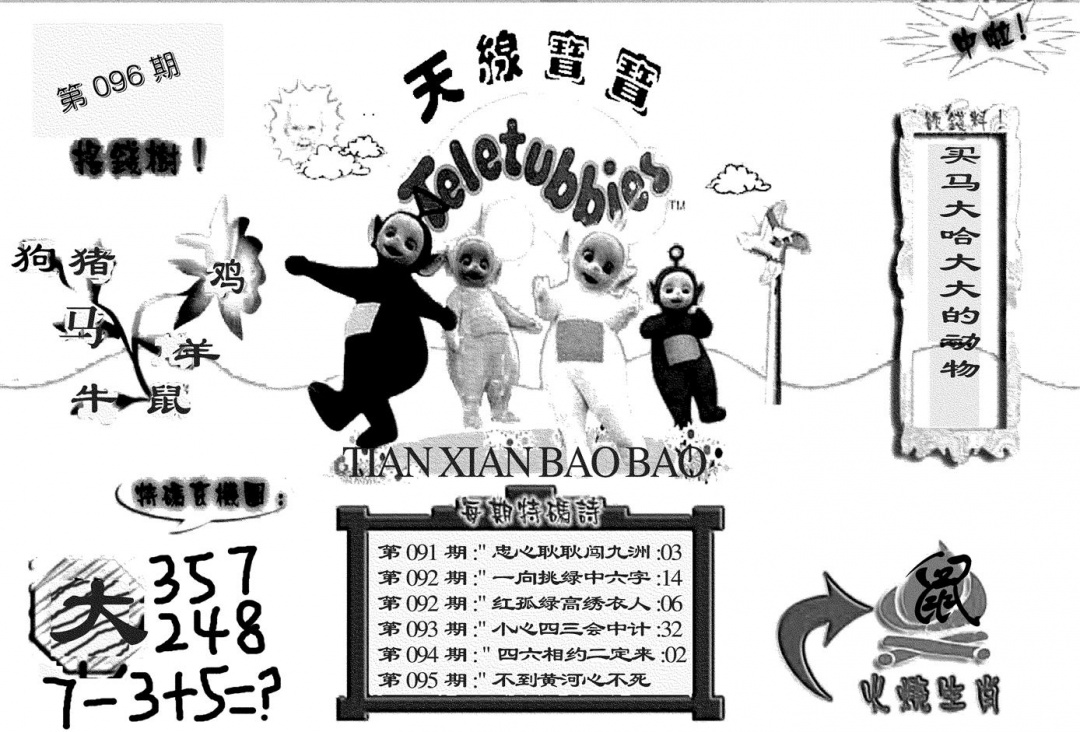 第 096 期
天線寶寶
中啦！
摇錢樹！
Teletubbies
TM
狗 猪
鸡
马
羊
牛 鼠
买马大哈大大的动物
TIAN XIAN BAO BAO
特碼玄機圖：
大
357
248
7-3+5=?
每期特碼詩
第 091 期 :" 忠心耿耿闯九洲 :03
第 092 期 :" 一向挑绿中六字 :14
第 092 期 :" 红孤绿高绣衣人 :06
第 093 期 :" 小心四三会中计 :32
第 094 期 :" 四六相约二定来 :02
第 095 期 :" 不到黄河心不死
鼠
火燒生肖